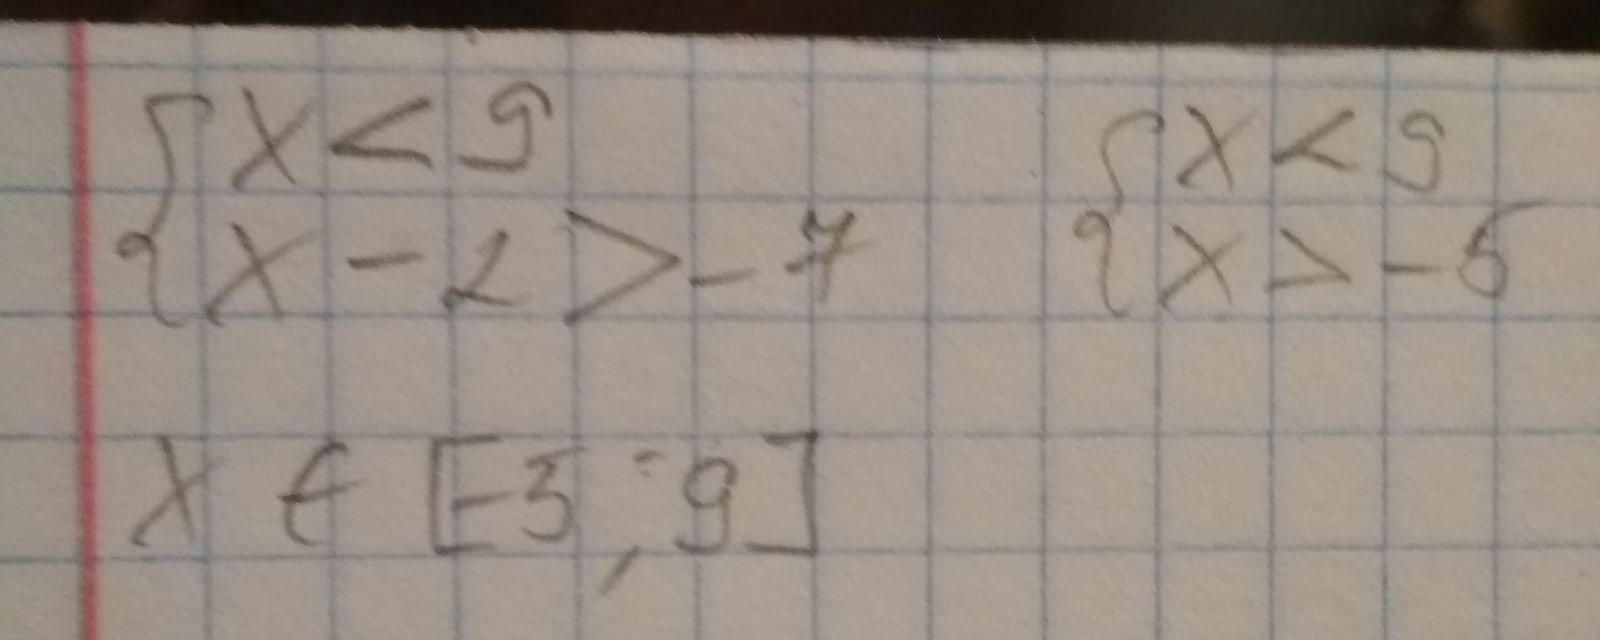 { x < 9
{ x - 2 > -7
{ x < 9
{ x > -5
x ∈ [-5; 9]